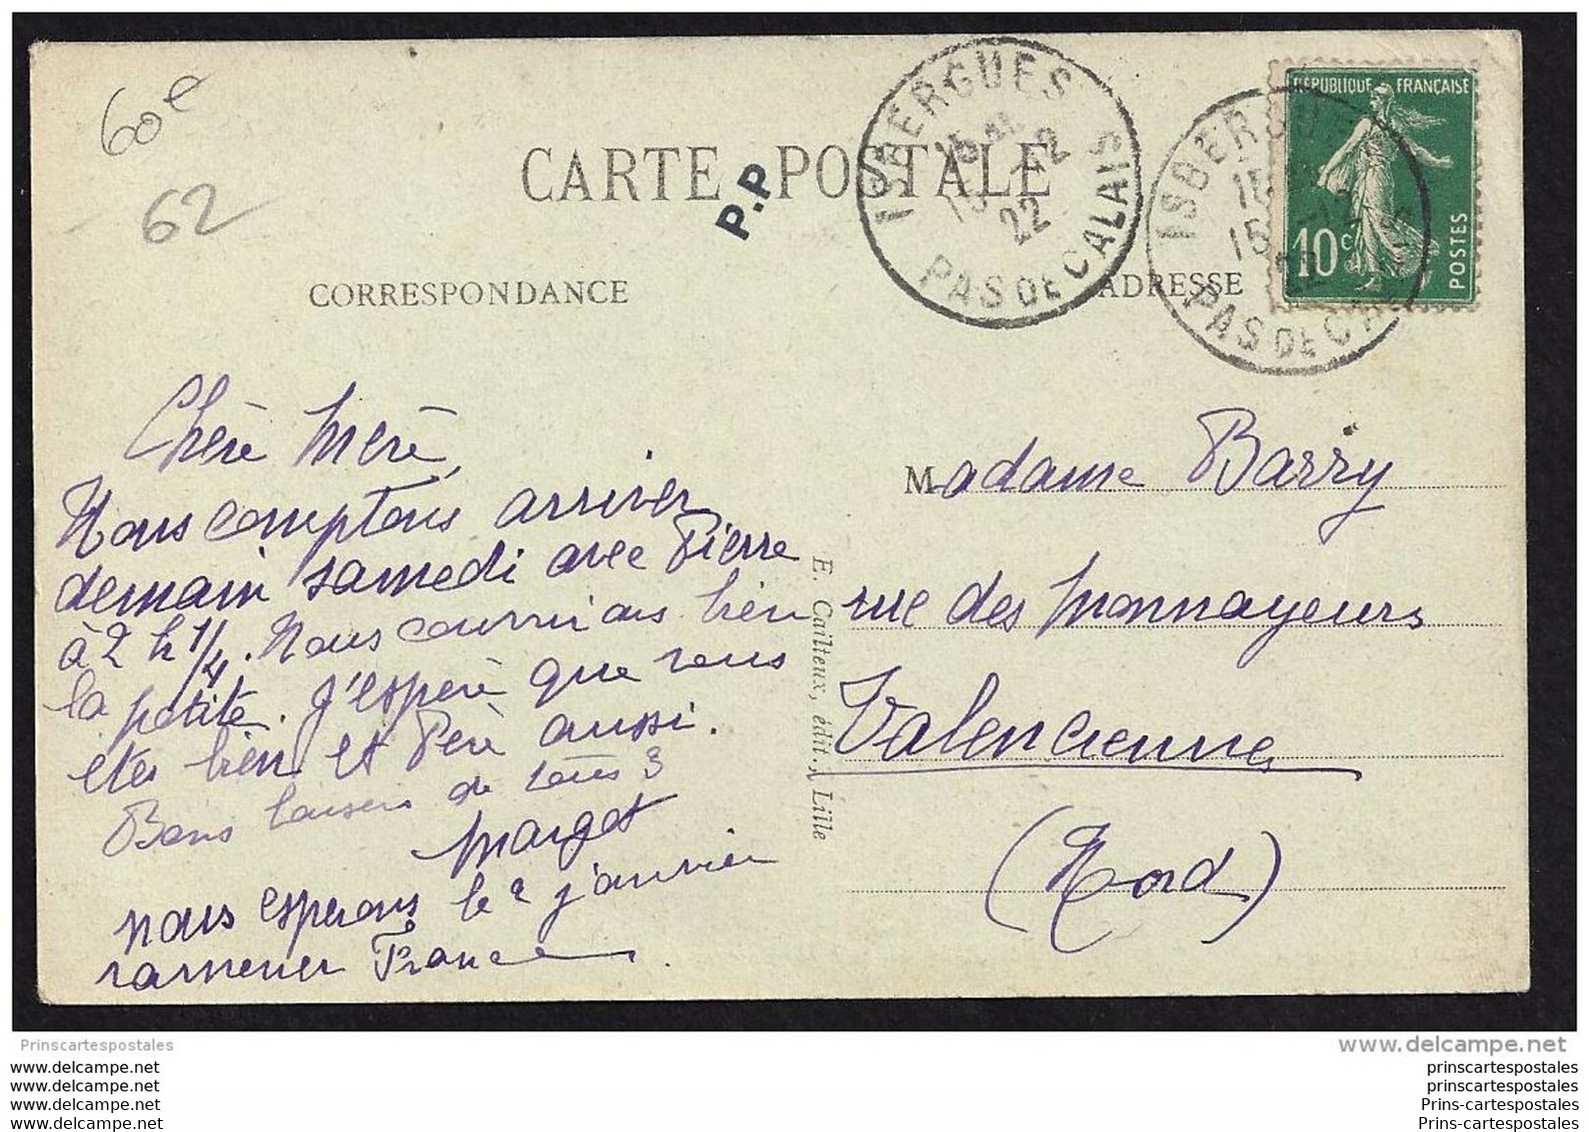 60€
62
CARTE POSTALE
P.P
ISBERGUES
15
15 -12
22
PAS DE CALAIS
ISBERGUES
15
15 -12
22
PAS DE CALAIS
RÉPUBLIQUE FRANÇAISE
10c
POSTES
CORRESPONDANCE
ADRESSE
Chère Mère,
Nous comptons arriver
demain samedi avec Pierre
à 2 h 1/4. Nous couvrirons bien
la petite. J'espère que vous
etes bien et Père aussi.
Bons baisers de tous 3
Margot
nous esperons le 2 janvier
ramener France.
E. Cailteux, édit. à Lille
Madame Barry
rue des Monnayeurs
Valenciennes
(Nord)
Prinscartespostales
www.delcampe.net
www.delcampe.net
www.delcampe.net
www.delcampe.net
www.delcampe.net
prinscartespostales
prinscartespostales
Prins-cartespostales
Prins-cartespostales